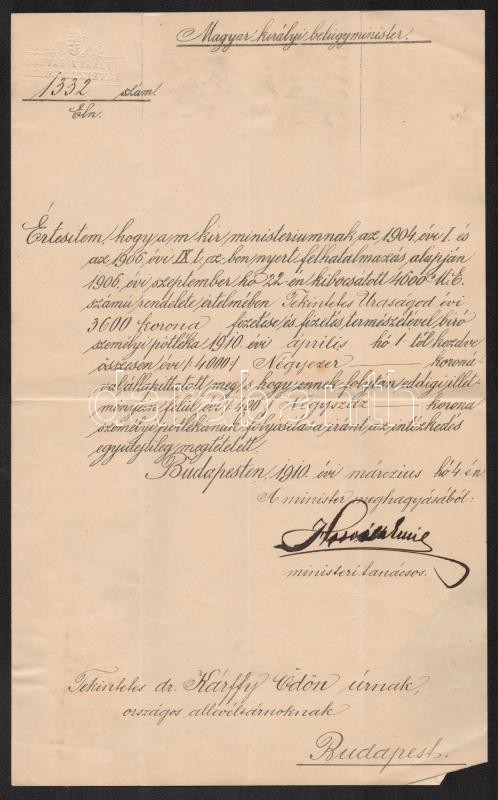 Magyar királyi belügyminister.
MAGYAR KIRÁLYI
1332 szám.
Eln.
Értesitem, hogy a m. kir. ministeriumnak az 1904. évi I. és
az 1906. évi IX. t. cz.-ben nyert felhatalmazás alapján
1906. évi szeptember hó 22-én kibocsátott 4000 M.E.
számu rendelete értelmében Tekintetes Uraságod évi
3600 korona fizetése és fizetés természetével biró
személyi pótléka 1910. évi április hó 1-től kezdve
összesen évi /:4000:/ Négyezer koroná-
val állapittatott meg s hogy ennek folytán eddigi illet-
ményein felül évi /:400:/ négyszáz korona
személyi pótlékának folyósitása iránt az intézkedés
egyidejüleg megtétetett.
Budapesten, 1910. évi márczius hó 4-én.
A minister meghagyásából:
Horváth Emil
ministeri tanácsos.
Tekintetes dr. Kárffy Ödön úrnak,
országos allevéltárnoknak
Budapest.
darabanth